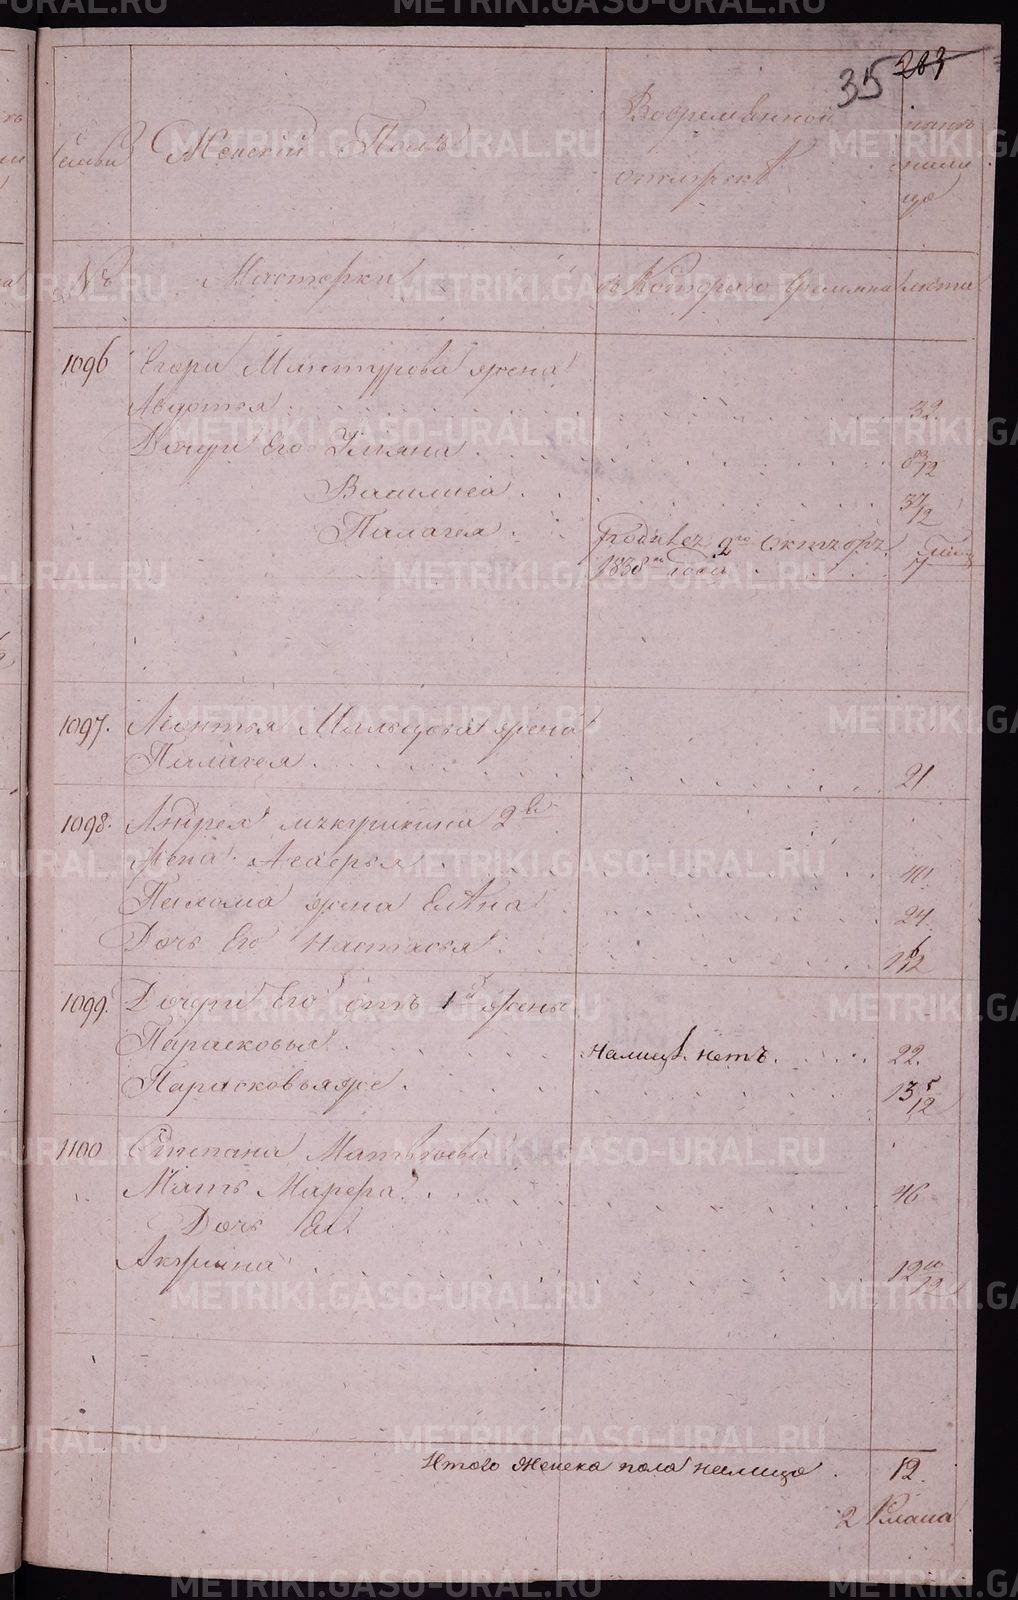 35 203
семьи Женский Полъ Вовременной отлучкѣ нынѣ налицо
№ъ Мастерки съ Котораго времяни лѣта
1096 Егора Мантурова жена
Авдотья 32
Дочери Его Ульяна 8 3/12
Василиса 3 7/12
Палагея Родилась 2го Октября
1838го Года 7
1097. Леонтья Мальцова жена
Палагея 21
1098. Андрея 2й
жена 40
жена Елѣна 24
Дочь Его Настасья 1 6/12
1099. Дочери Его отъ 1й жены
Парасковья налице нетъ. 22.
Парасковьяже 13 5/12
1100 Степана Матвѣева
Мать Марфра 46
Дочь Ея
Акулина 12 10/12
Итого женска пола налицо 12.
2 Класа
METRIKI.GASO-URAL.RU